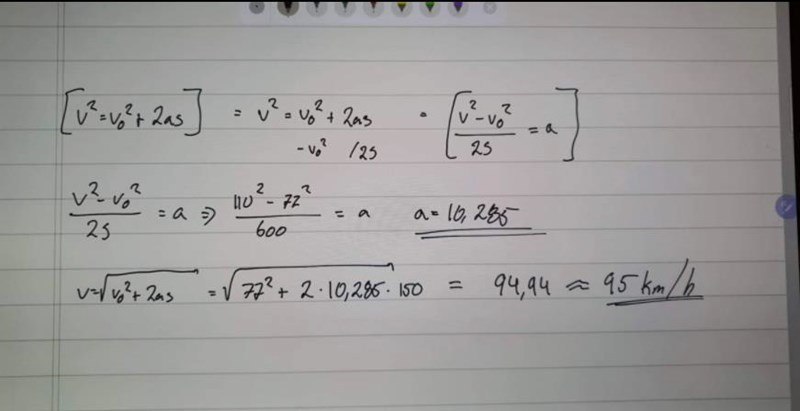 [v²=v₀²+2as] = v²=v₀²+2as · [(v²-v₀²)/2s = a]
-v₀² /2s
(v²-v₀²)/2s = a ⇒ (110²-77²)/600 = a a=10,285
v=√(v₀²+2as) = √(77²+2·10,285·150) = 94,94 ≈ 95 km/h